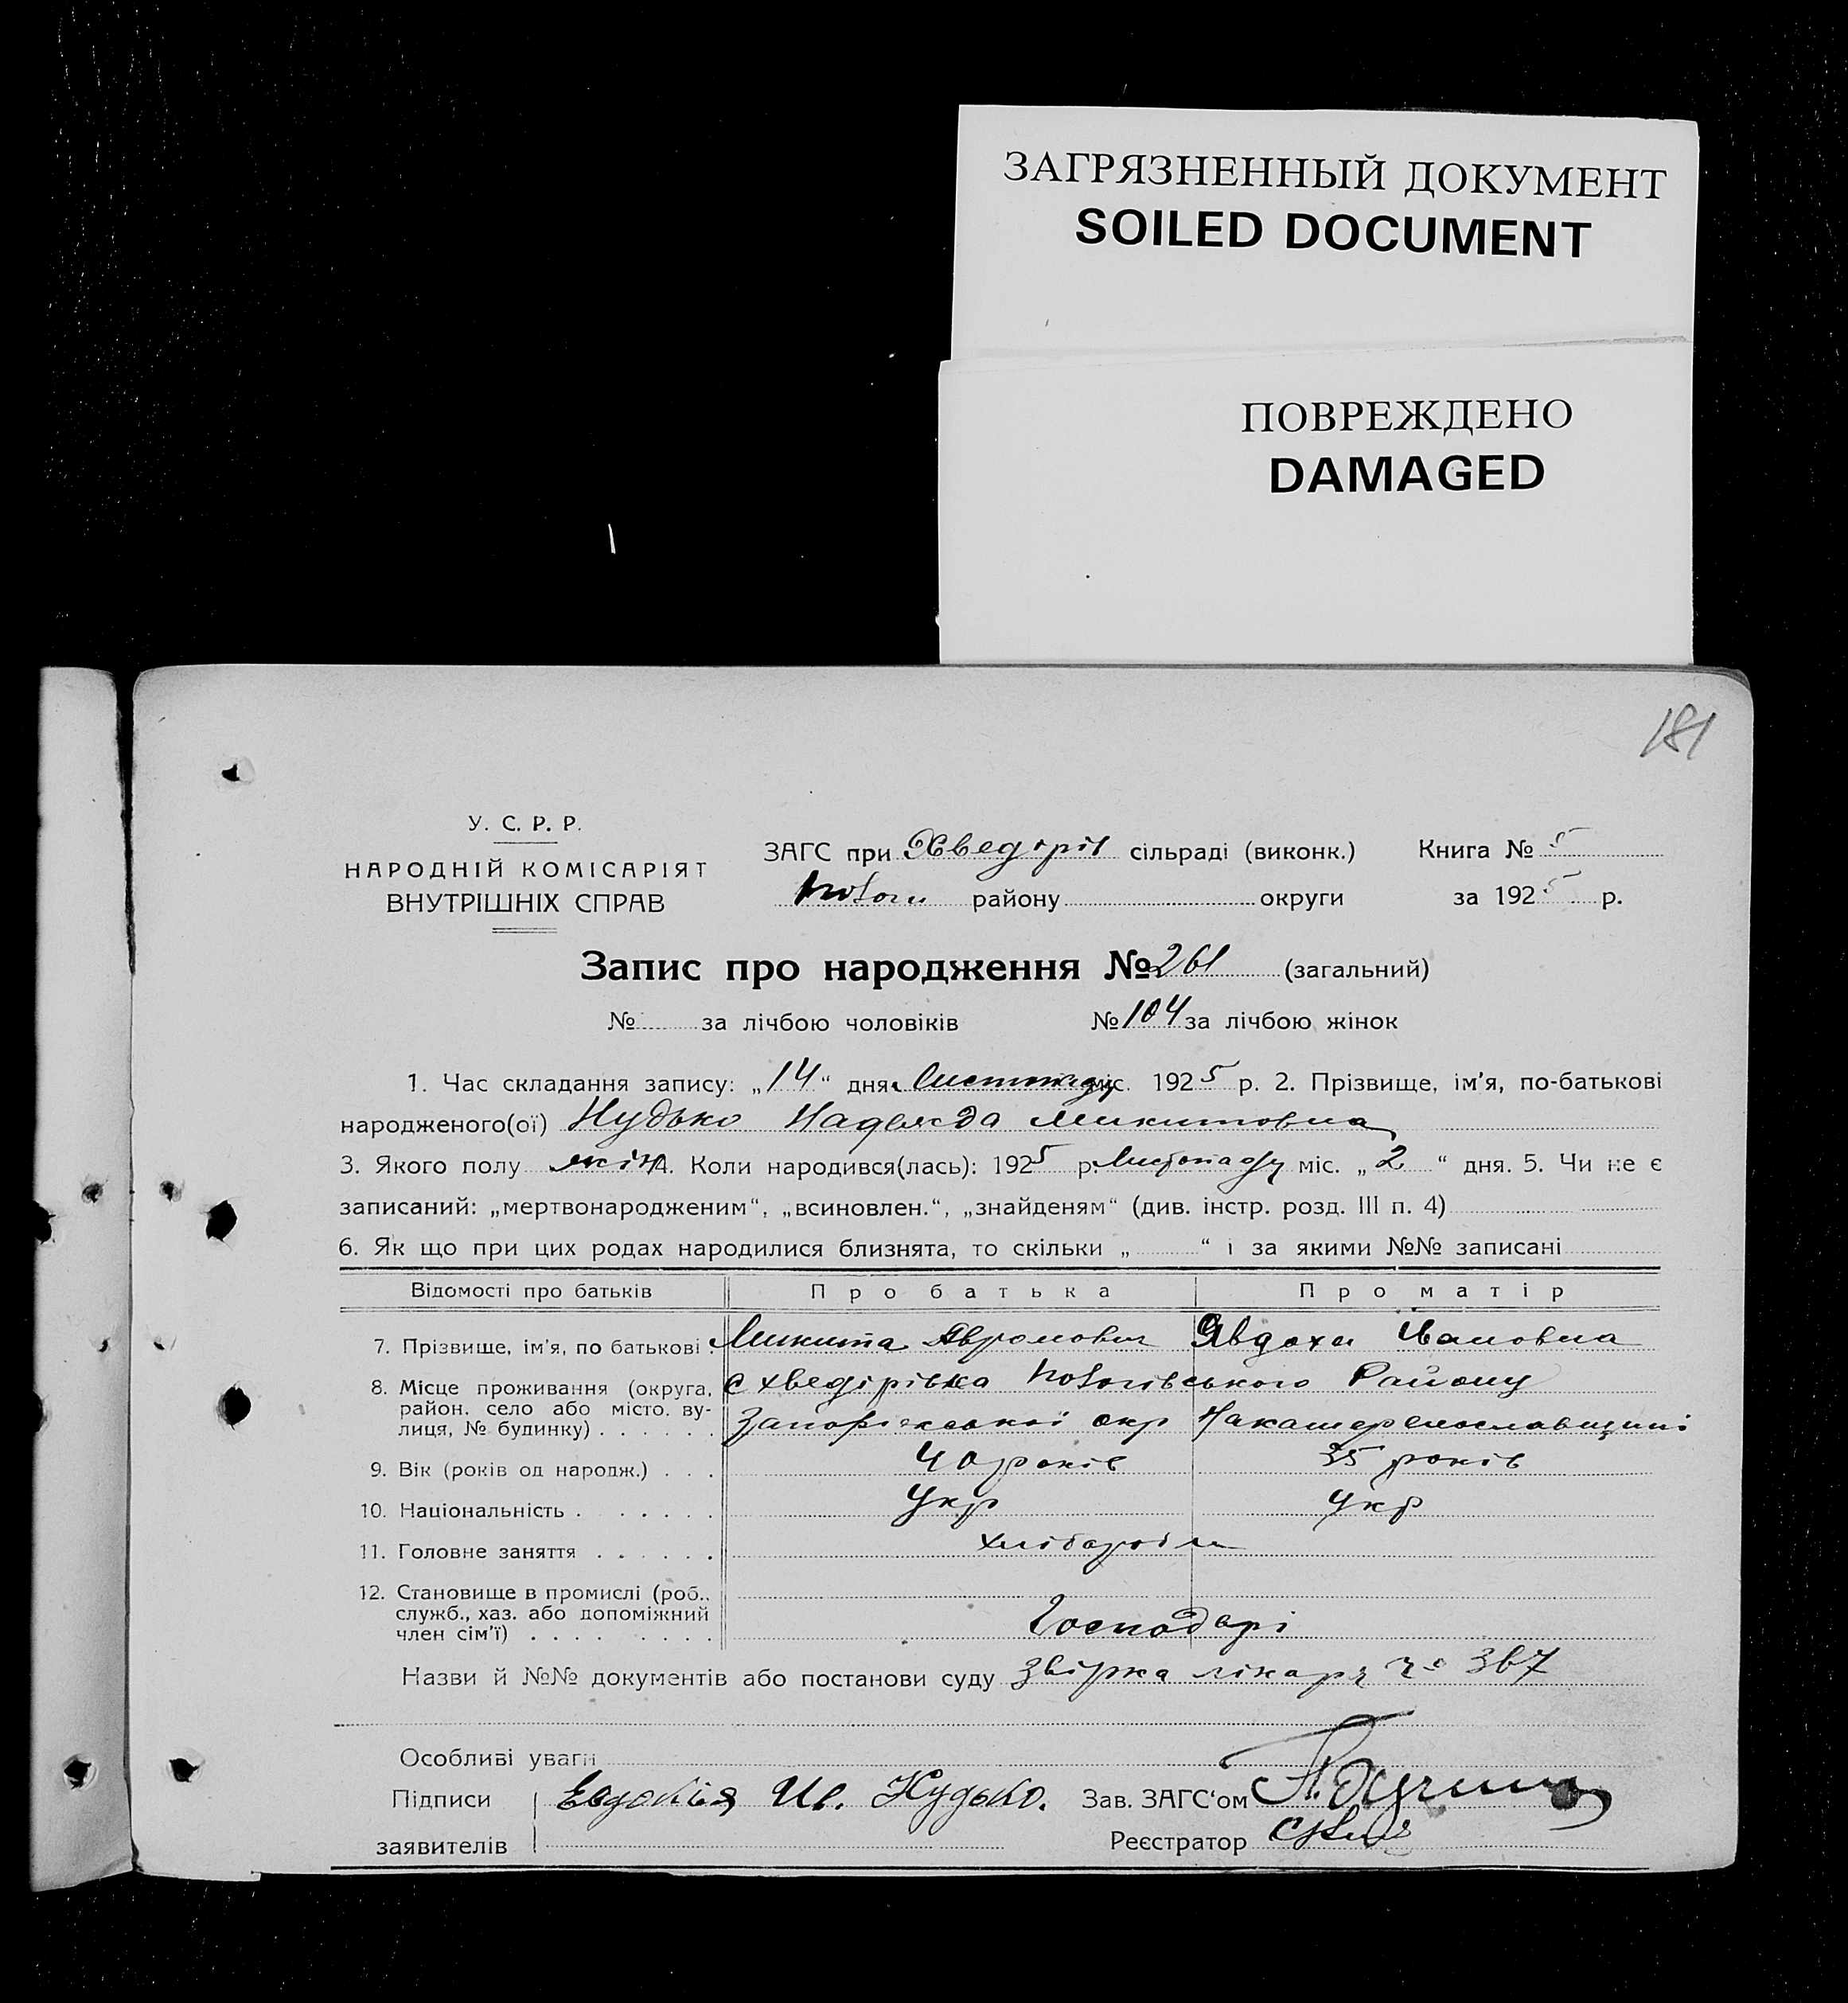 ЗАГРЯЗНЕННЫЙ ДОКУМЕНТ
SOILED DOCUMENT
ПОВРЕЖДЕНО
DAMAGED
181
У. С. Р. Р.
НАРОДНІЙ КОМІСАРІЯТ
ВНУТРІШНІХ СПРАВ
ЗАГС при Хведорів сільраді (виконк.) Книга № 5
району округи за 1925 р.
Запис про народження № 261 (загальний)
№ за лічбою чоловіків № 104 за лічбою жінок
1. Час складання запису: „14“ дня Листопаду міс. 1925 р. 2. Прізвище, ім'я, по-батькові
народженого(ої) Нудько Надежда Микитовна
3. Якого полу жін 4. Коли народився(лась): 1925 р. Листопаду міс. „2“ дня. 5. Чи не є
записаний: „мертвонародженим“, „всиновлен.“, „знайденям“ (див. інстр. розд. III п. 4)
6. Як що при цих родах народилися близнята, то скільки „ “ і за якими №№ записані
Відомості про батьків Про батька Про матір
7. Прізвище, ім'я, по батькові. Микита Явдоха Івановна
8. Місце проживання (округа, район, село або місто, вулиця, № будинку) с Хведорівка Району
окр
9. Вік (років од народж.) 40 років 35 років
10. Національність Укр Укр
11. Головне заняття хлібароби
12. Становище в промислі (роб., служб., хаз. або допоміжний член сім'ї) Господарі
Назви й №№ документів або постанови суду лікаря 367
Особливі уваги
Підписи Евдокія Ив. Нудько. Зав. ЗАГС'ом
заявителів Реєстратор